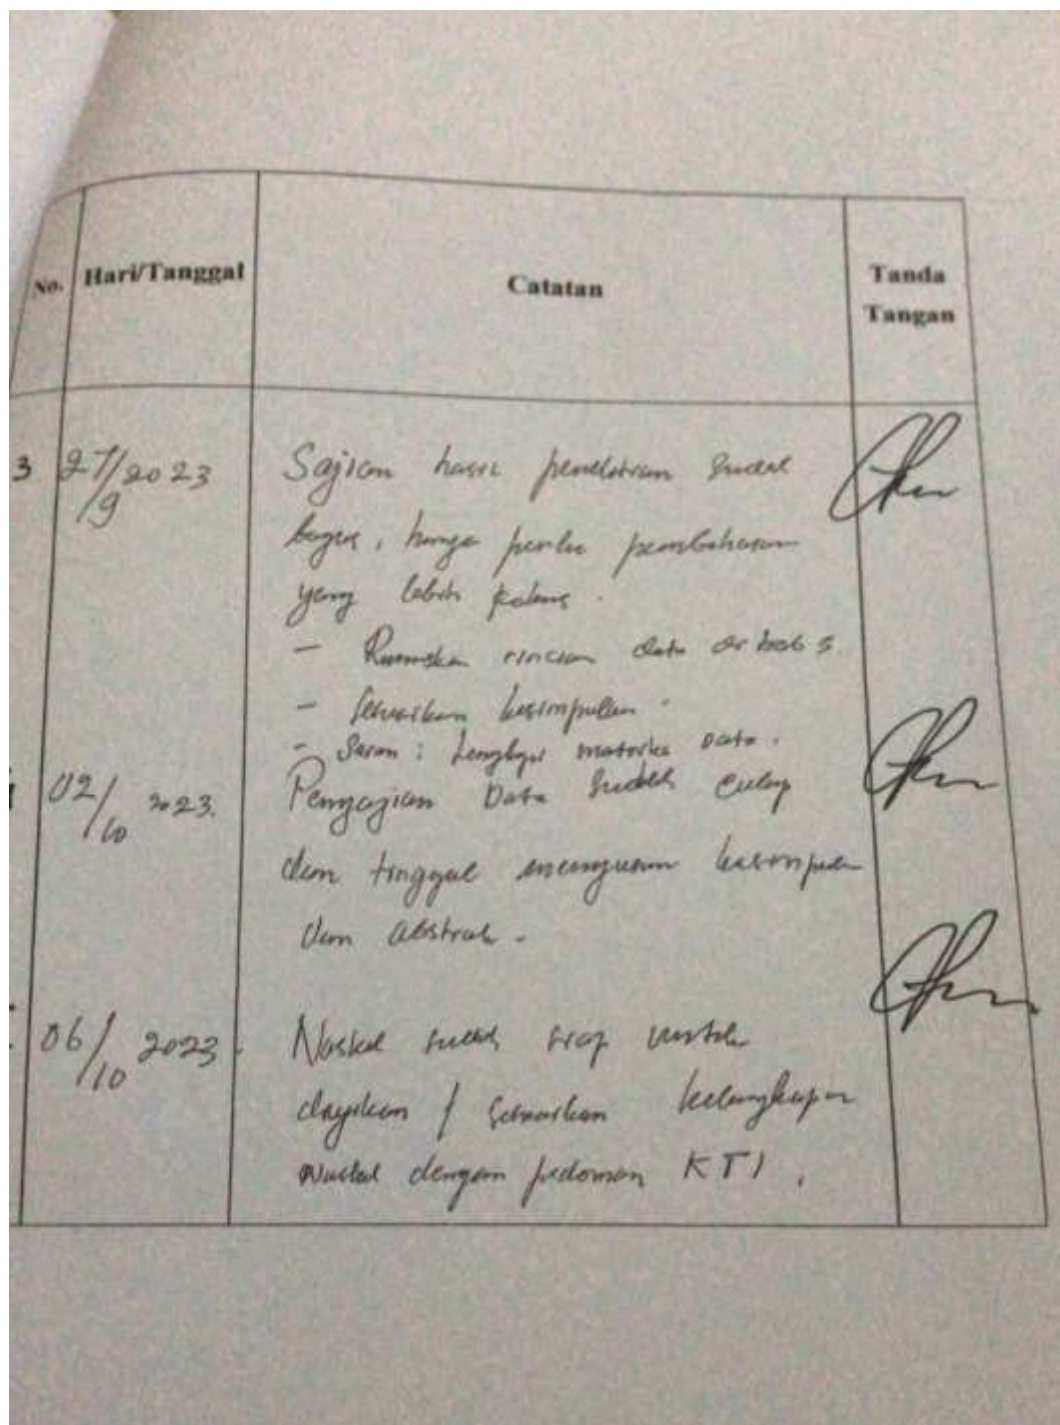 No. Hari/Tanggal Catatan Tanda
Tangan
3 27/9 2023 Sajian hasil penelitian sudah
bagus, hanya perlu pembahasan
yang lebih
- rincian data di bab 5.
- Sesuaikan kesimpulan.
- Saran: Lengkapi data.
02/10 2023. Penyajian Data sudah cukup
dan tinggal menyusun kesimpulan
dan abstrak.
06/10 2023. Naskah sudah siap untuk
diujikan / sesuaikan kelengkapan
Naskah dengan pedoman KTI.